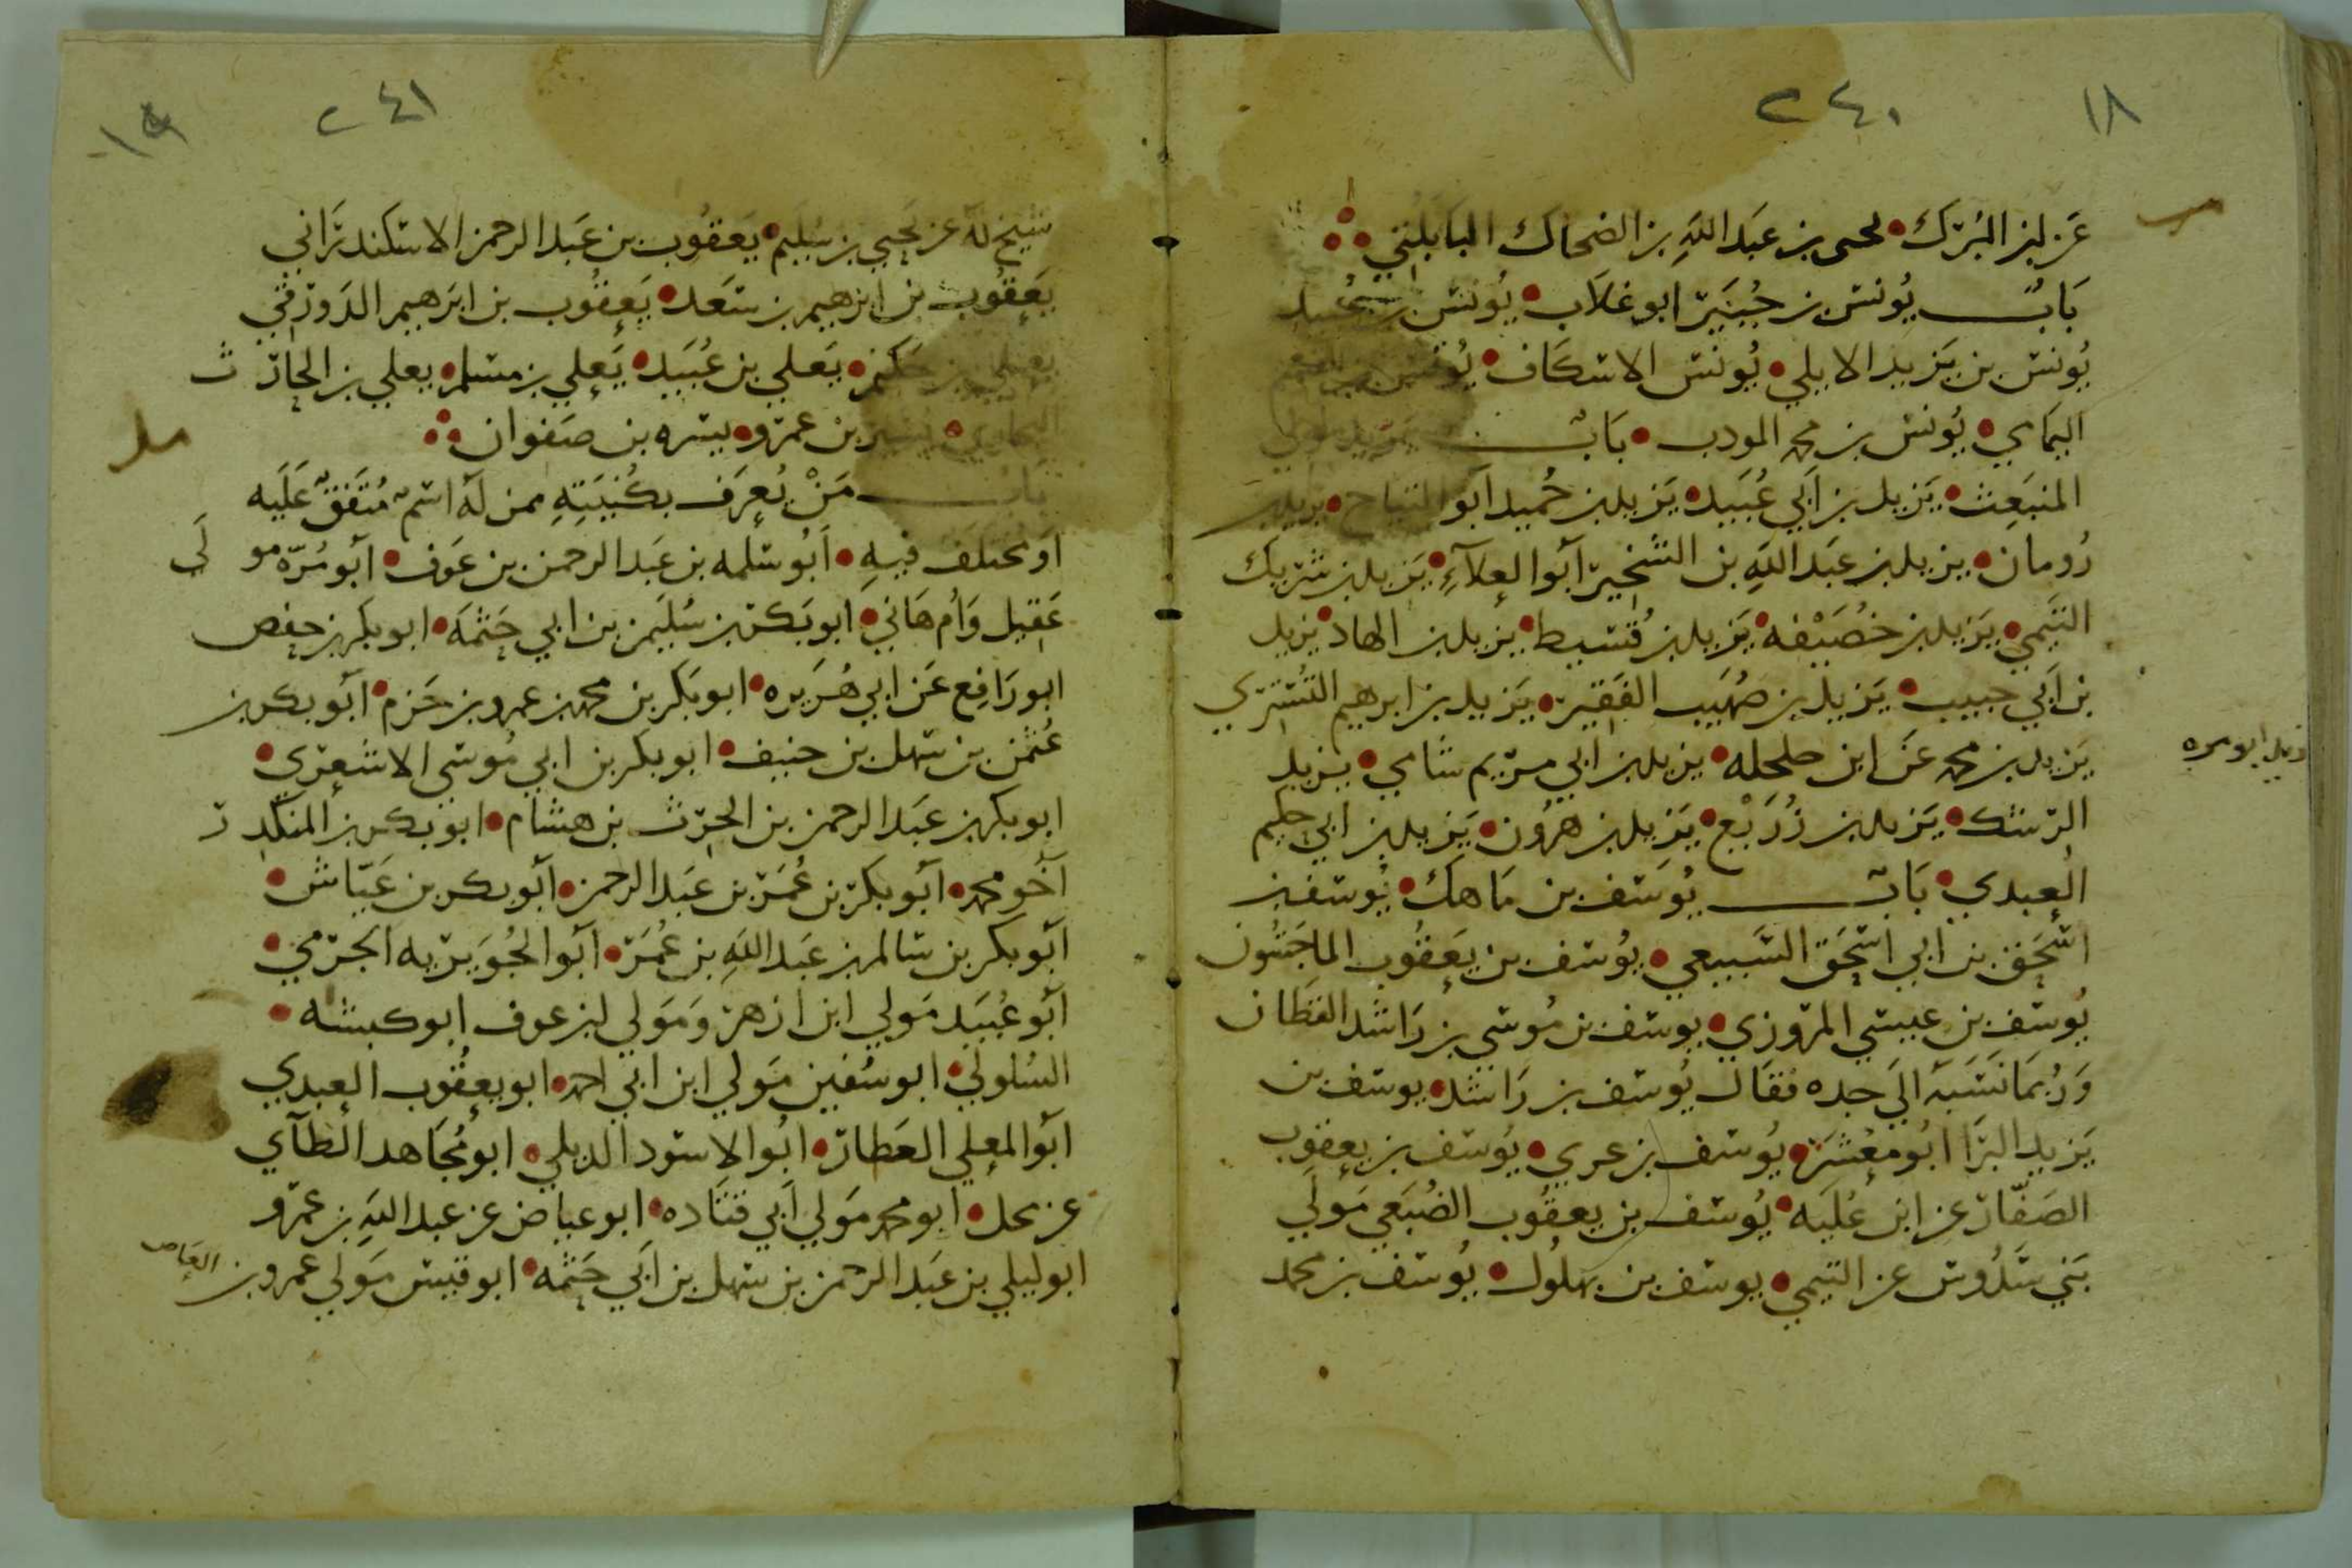 ١٨
٢٤٠
عن ابن المبرك • يحيى بن عبد الله بن الضحاك البابلتي
باب يونس بن جبير ابو غلاب • يونس بن عبيد
يونس بن يزيد الايلي • يونس الاسكاف • يونس بن القسم
اليمامي • يونس بن محمد المودب • باب يزيد مولى
المنبعث • يزيد بن أبي عبيد • يزيد بن حميد أبو التياح • يزيد بن
رومان • يزيد بن عبد الله بن الشخير أبو العلاء • يزيد بن شريك
التيمي • يزيد بن خصيفه • يزيد بن قسيط • يزيد بن الهاد • يزيد
بن أبي حبيب • يزيد بن صهيب الفقير • يزيد بن ابرهيم التستري
يزيد بن محمد عن ابن حلحله • يزيد بن أبي مريم شامي • يزيد
الرشك • يزيد بن زريع • يزيد بن هرون • يزيد بن ابي حكيم
العبدي • باب يوسف بن ماهك • يوسف بن
اسحق بن ابي اسحق السبيعي • يوسف بن يعقوب الماجشون
يوسف بن عيسى المروزي • يوسف بن موسى بن راشد القطان
وربما نسبه الى جده فقال يوسف بن راشد • يوسف بن
يزيد البرا ابو معشر • يوسف بن عدي • يوسف بن يعقوب
الصفار عن ابن عليه • يوسف بن يعقوب الضبعي مولى
بني سدوس عن التيمي • يوسف بن بهلول • يوسف بن محمد
٢٤١
١٩
شيخ له عن يحيى بن سليم • يعقوب بن عبد الرحمن الاسكندراني
يعقوب بن ابرهيم بن سعد • يعقوب بن ابرهيم الدورقي
يعلى بن حكيم • يعلى بن عبيد • يعلي بن مسلم • يعلي بن الحارث
المحاربي • يسير بن عمرو • يسره بن صفوان
باب من يعرف بكنيته ممن له اسم متفق عليه
او مختلف فيه • أبو سلمه بن عبد الرحمن بن عوف • أبو مرة مولى
عقيل وأم هاني • ابو بكر بن سليمن بن ابي حثمة • ابو بكر بن حفص
ابو رافع عن ابي هريره • ابو بكر بن محمد بن عمرو بن حزم • أبو بكر بن
عثمن بن سهل بن حنيف • ابو بكر بن ابي موسى الاشعري •
ابو بكر بن عبد الرحمن بن الحرث بن هشام • ابو بكر بن المنكدر
أخو محمد • أبو بكر بن عمر بن عبد الرحمن • أبو بكر بن عياش •
أبو بكر بن سالم بن عبد الله بن عمر • أبو الجويريه الجرمي •
أبو عبيد مولي ابن ازهر ومولي ابن عوف ابو كبشه •
السلولي • ابو سفين مولي ابن ابي احمد • ابو يعقوب العبدي
أبو المعلي العطار • ابو الاسود الديلي • ابو مجاهد الطآي
عن محل • ابو محمد مولي أبي قتاده • ابو عياض عن عبد الله بن عمرو
ابو ليلي بن عبد الرحمن بن سهل بن ابي حثمه • ابو قيس مولي عمرو بن العاص